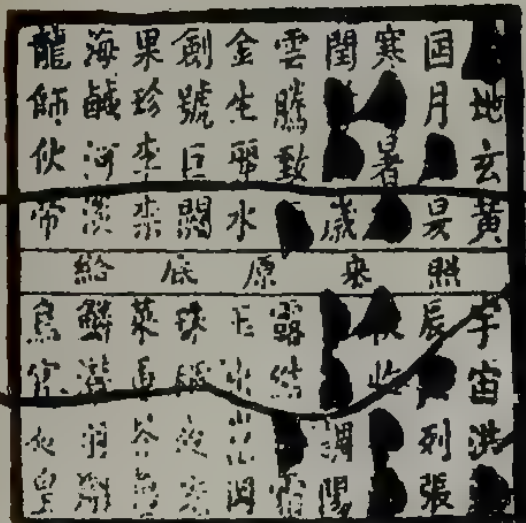 地玄黃
国月昃
寒暑
閏歲
雲騰致
金生麗水
創號巨闕
果珍李柰
海鹹河淡
龍師伙帝
照來原底給
宇宙洪
辰列張
收
調陽
露結霜
玉出崑岡
珠稱夜光
菜重芥薑
鱗潛羽翔
鳥官人皇